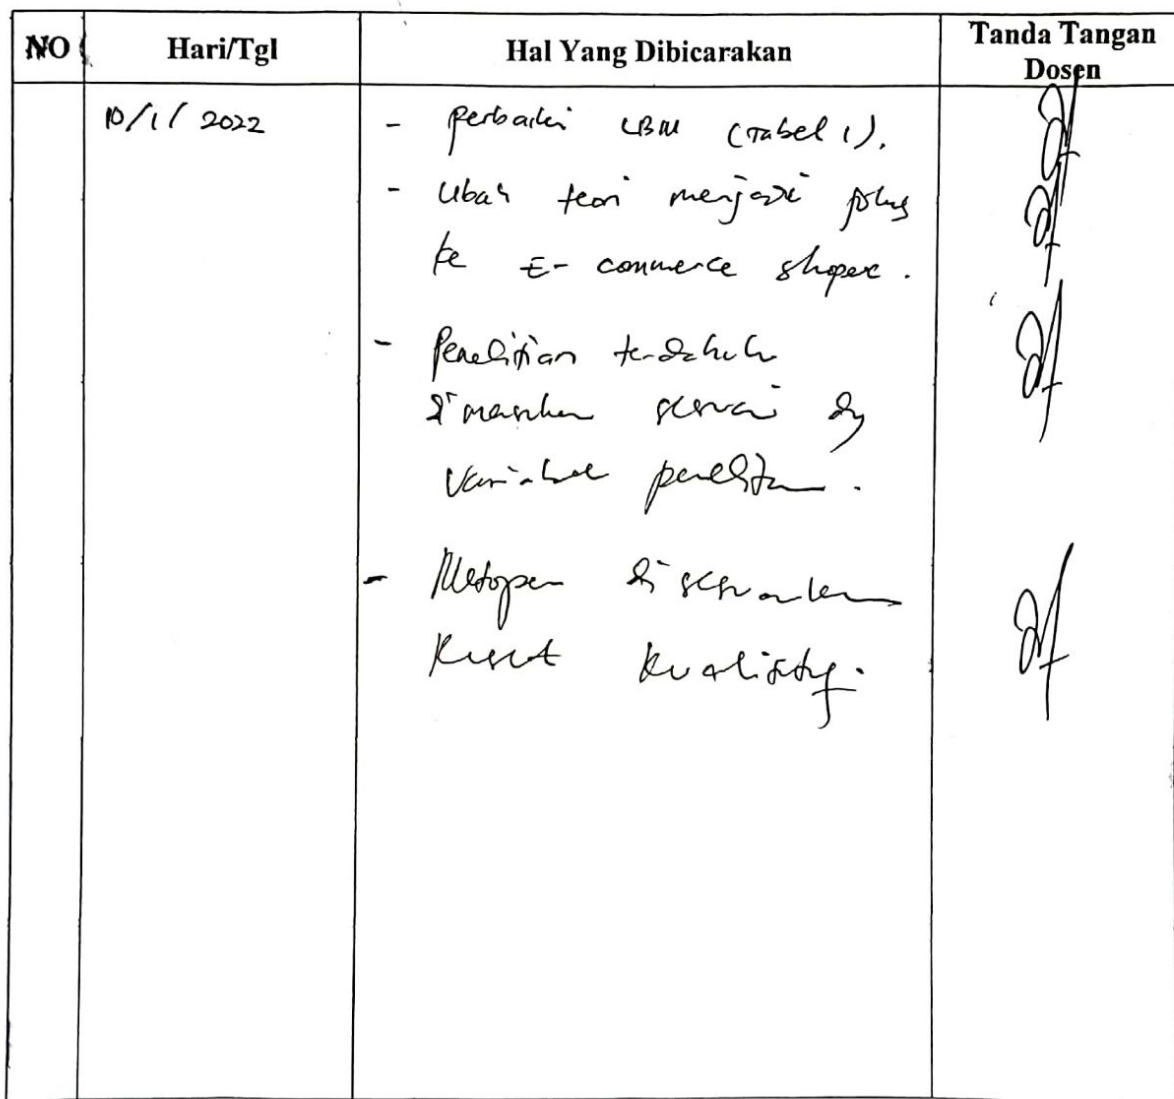 NO Hari/Tgl Hal Yang Dibicarakan Tanda Tangan
Dosen
10/1/2022 - perbaiki LBM (Tabel 1).
- Ubah teori menjadi fokus
ke E-commerce shopee.
- Penelitian terdahulu
dimasukan sesuai dg
Variabel penelitian.
- Metopen disesuaikan
Riset Kualitatif.